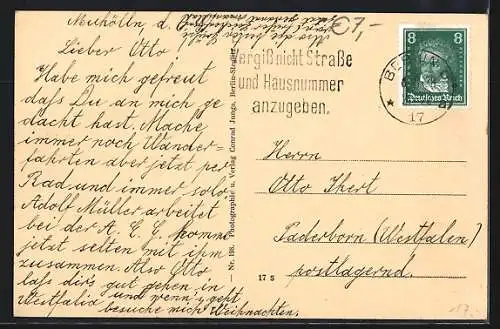 Neukölln d.
Lieber Otto
Habe mich gefreut
daſs Du an mich ge
dacht hast. Mache
immer noch Wander-
fahrten aber jetzt per
Rad und immer solo.
Adolf Müller arbeitet
bei der A. E. G. komme
jetzt selten mit ihm
zusammen. Also Otto,
laſs dirs gut gehen in
Westfalia und wenn's geht
besuche mich Weihnachten.
Nr. 198. Photographie u. Verlag Conrad Junga, Berlin-
€7,-
Vergiß nicht Straße
und Hausnummer
anzugeben.
BERLIN
* 17
8 8
Deutsches Reich
Herrn
Otto Ihert
Paderborn (Westfalen)
postlagernd.
17 S